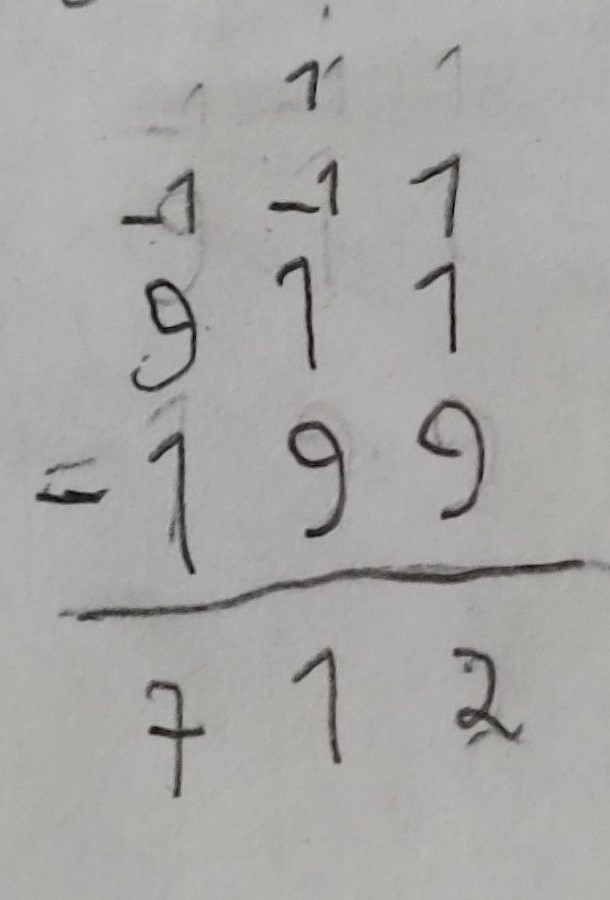 1
-1 -1 1
9 1 1
- 1 9 9
7 1 2